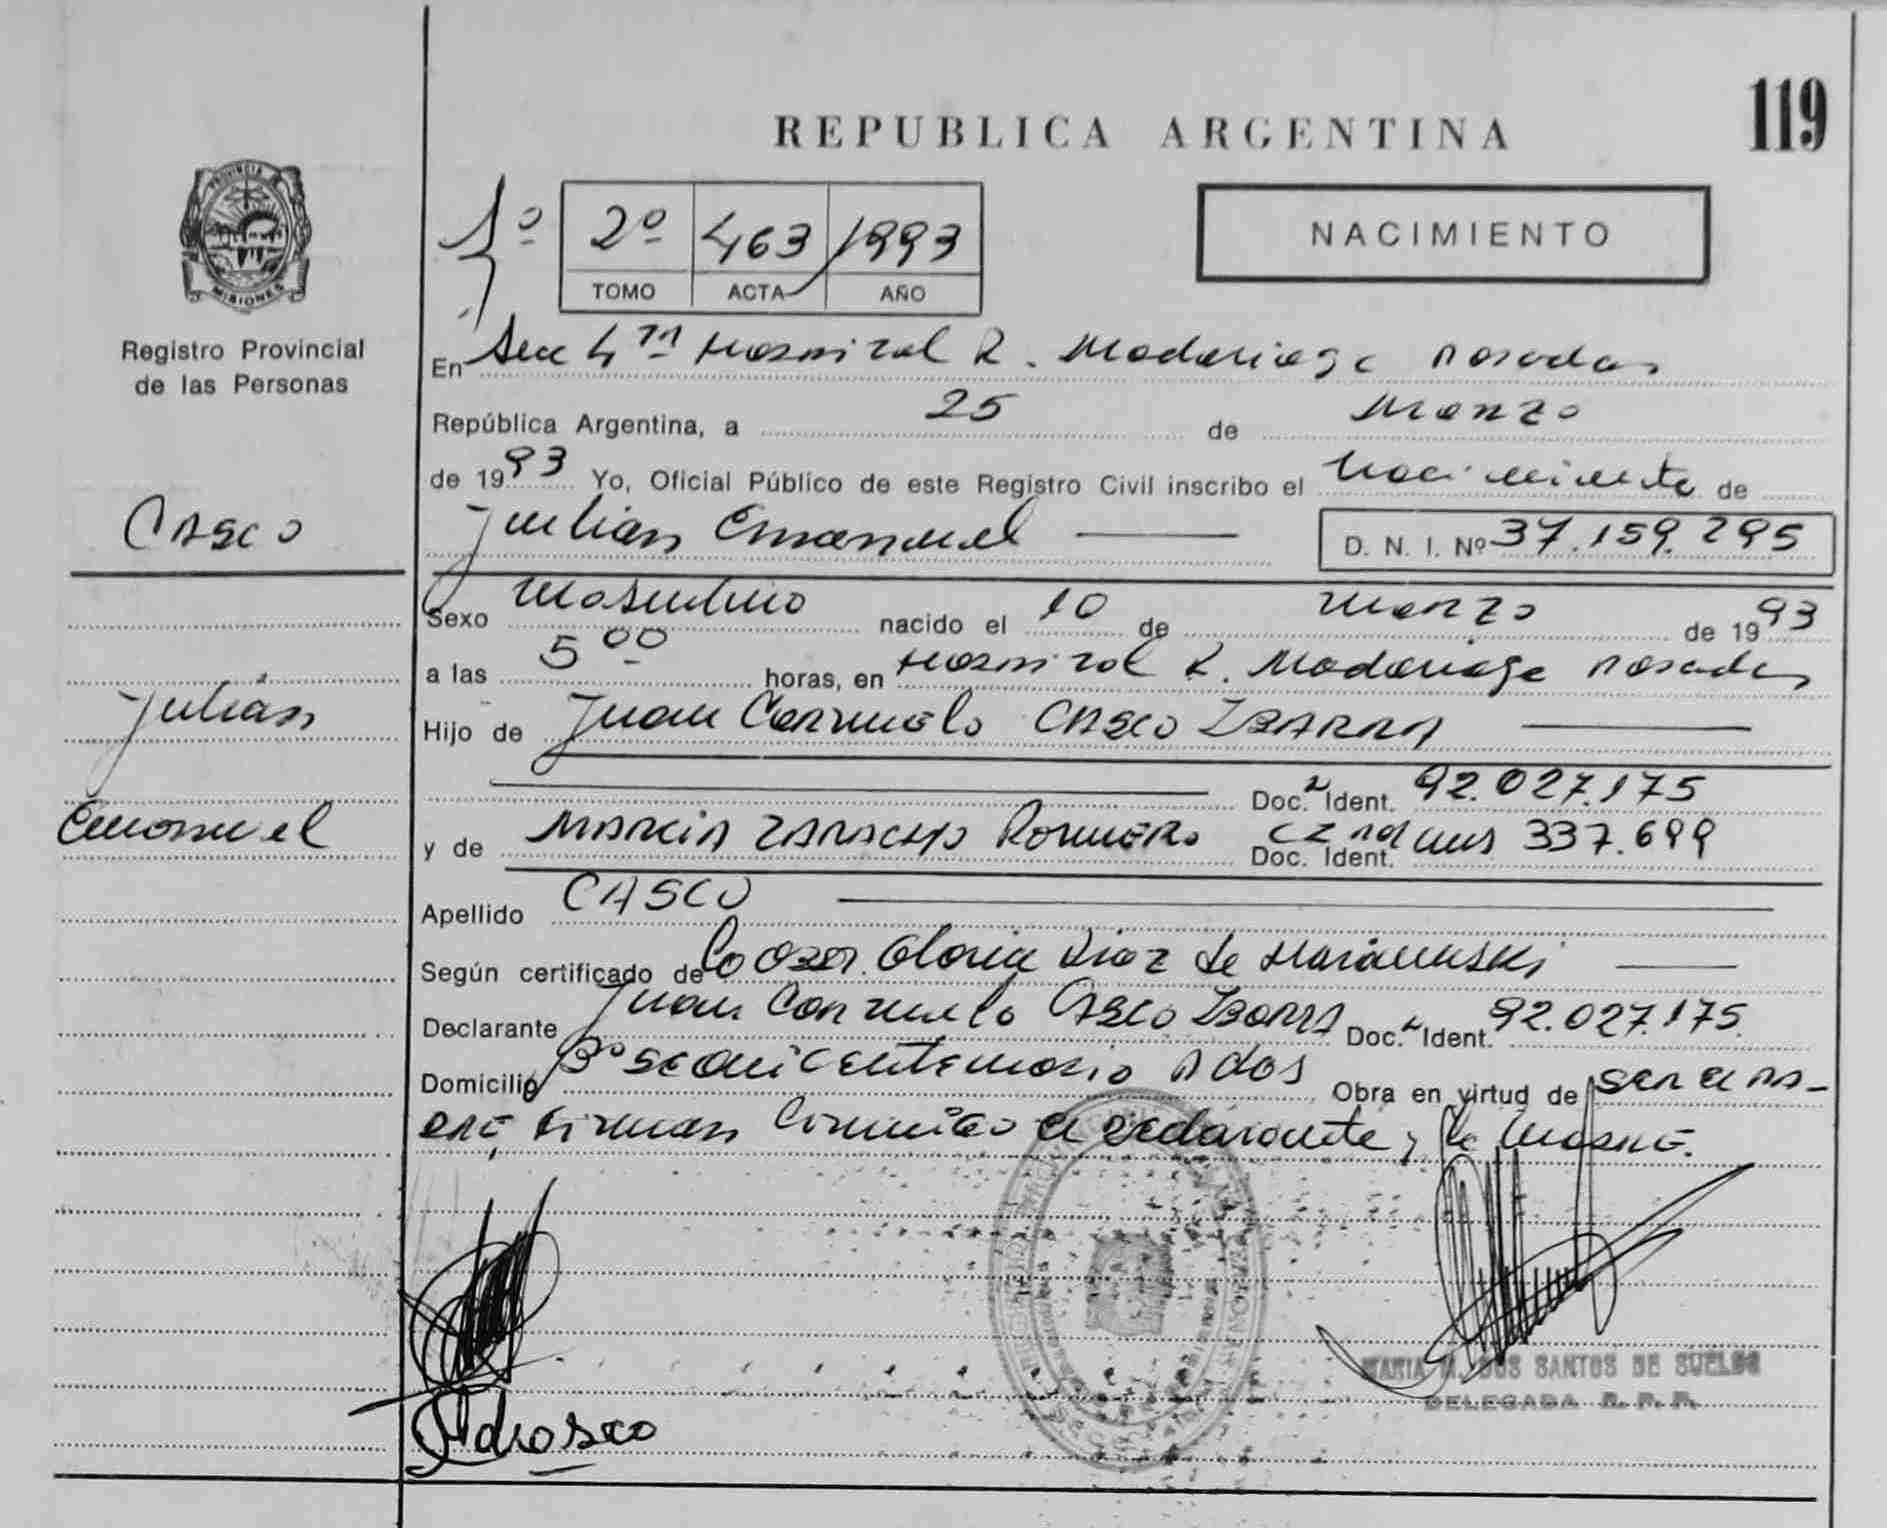 119
REPUBLICA ARGENTINA
PROVINCIA DE
MISIONES
Registro Provincial
de las Personas
1º 2º 463 1993
TOMO ACTA AÑO
NACIMIENTO
En Secc 4ta Hospital R. Madariaga Posadas
República Argentina, a 25 de Marzo
de 1993 Yo, Oficial Público de este Registro Civil inscribo el Nacimiento de
CASCO
Julian Emanuel D. N. I. Nº 37.159.295
Sexo Masculino nacido el 10 de Marzo de 1993
a las 5 00 horas, en Hospital R. Madariaga Posadas
Julián
Hijo de Juan Carmelo CASCO IBARRA
Doc. Ident. 92.027.175
Emanuel
y de MARCIA ZARACHO ROMERO Doc. Ident. 337.699
Apellido CASCO
Según certificado de Gloria Diaz de
Declarante Juan Carmelo Casco Ibarra Doc. Ident. 92.027.175
Domicilio Bº Sesquicentenario Pdas Obra en virtud de ser el pa-
dre firman conmigo el declarante y la madre.
MARIA M. DOS SANTOS DE SUELDO
DELEGADA R. P. P.